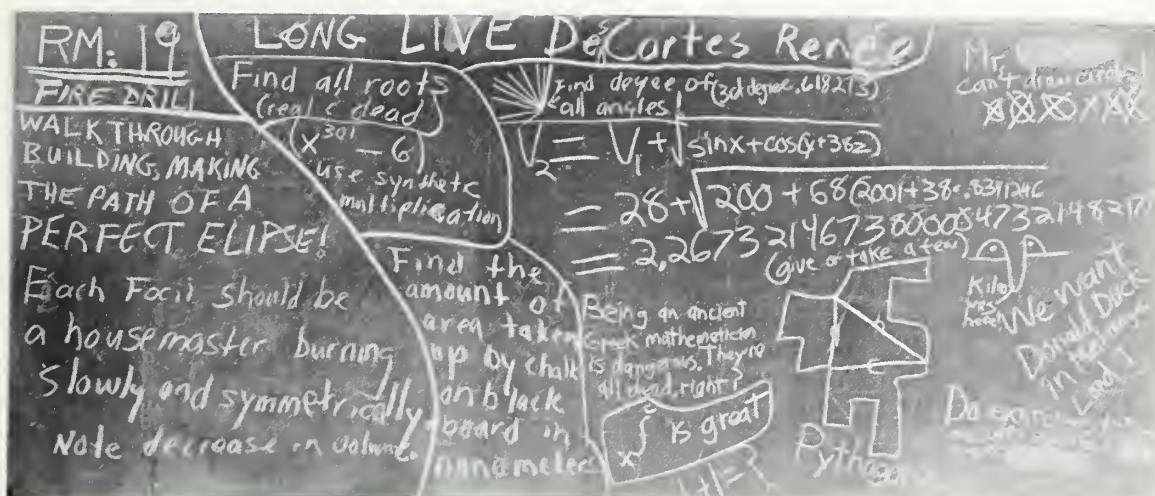 RM: 19
FIRE DRILL
WALK THROUGH
BUILDING, MAKING
THE PATH OF A
PERFECT ELIPSE!
Each Focii should be
a housemaster burning
slowly and symmetrically
Note decrease in volume.
LONG LIVE DesCartes Renée
Find all roots
(real & dead)
(x³⁰¹ - 6)
use synthetic
multiplication
Find the
amount of
area taken
up by chalk
on black
board in
nanometers
Find degee of (3d degree, 618273)
all angles
V₂ = V₁ + √sinx+cos(y+38z)
= 28+√200 + 68(200)+38
= 2,2673
(give or take a few)
Being an ancient
Greek mathematician
is dangerous. They're
all dead, right?
x is great
1+1=?
Mr.
can't draw circles!
Kilroy
was
here
We want
Donald Duck
in
Land!